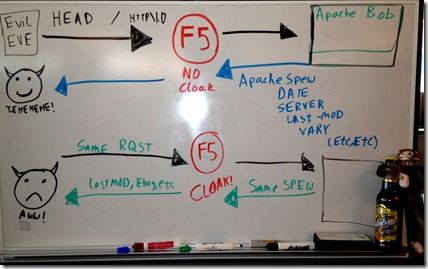 Evil
EVE
HEAD / HTTP/1.0
F5
NO
Cloak
Apache Bob
TEHEHEHE!
Apache Spew
DATE
SERVER
LAST-MOD
VARY
(Etc, Etc)
Same RQST
F5
CLOAK!
LastMOD, Etag, etc
Same SPEW
AWW!